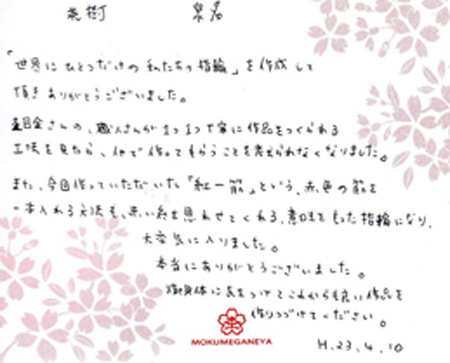 英樹 泉名
「世界にひとつだけの私たちの指輪」を作成して
頂きありがとうございました。
杢目金さんの、職人さんが1つ1つ丁寧に作品をつくられる
工法を見たら、他で作ってもらうことを考えられなくなりました。
また、今回作っていただいた「紅一筋」という、赤色の筋を
一本入れる方法も、赤い糸を思わせてくれる、意味をもった指輪になり、
大変気に入りました。
本当にありがとうございました。
御身体に気をつけてこれからも良い作品を
作りつづけてください。
MOKUMEGANEYA
H.23.4.10